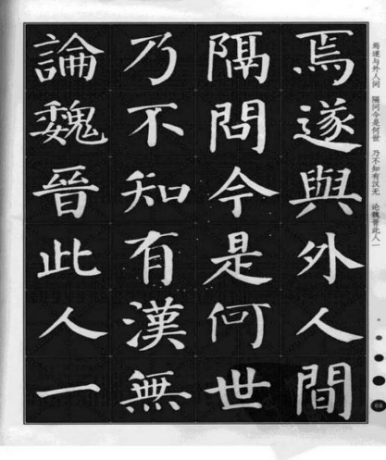 焉遂與外人間
隔問今是何世
乃不知有漢無
論魏晉此人一
焉遂与外人间　隔问今是何世　乃不知有汉无　论魏晋此人一